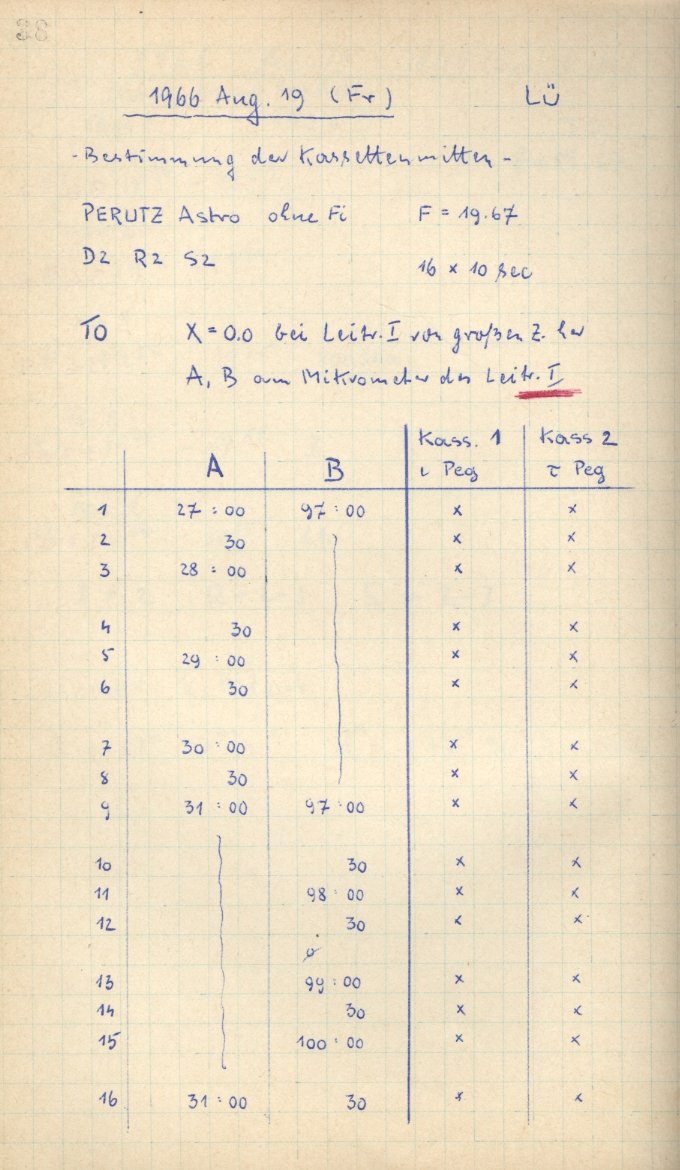 28
1966 Aug. 19 (Fr) LÜ
- Bestimmung der Kassettenmitten -
PERUTZ Astro ohne Fi F = 19.67
D2 R2 S2 16 × 10 sec
TO X = 0.0 bei Leitr. I von großen Z. her
A, B am Mikrometer des Leitr. I
Kass. 1 Kass 2
A B ι Peg τ Peg
1 27 : 00 97 : 00 x x
2 30 x x
3 28 : 00 x x
4 30 x x
5 29 : 00 x x
6 30 x x
7 30 : 00 x x
8 30 x x
9 31 : 00 97 : 00 x x
10 30 x x
11 98 : 00 x x
12 30 x x
13 99 : 00 x x
14 30 x x
15 100 : 00 x x
16 31 : 00 30 x x